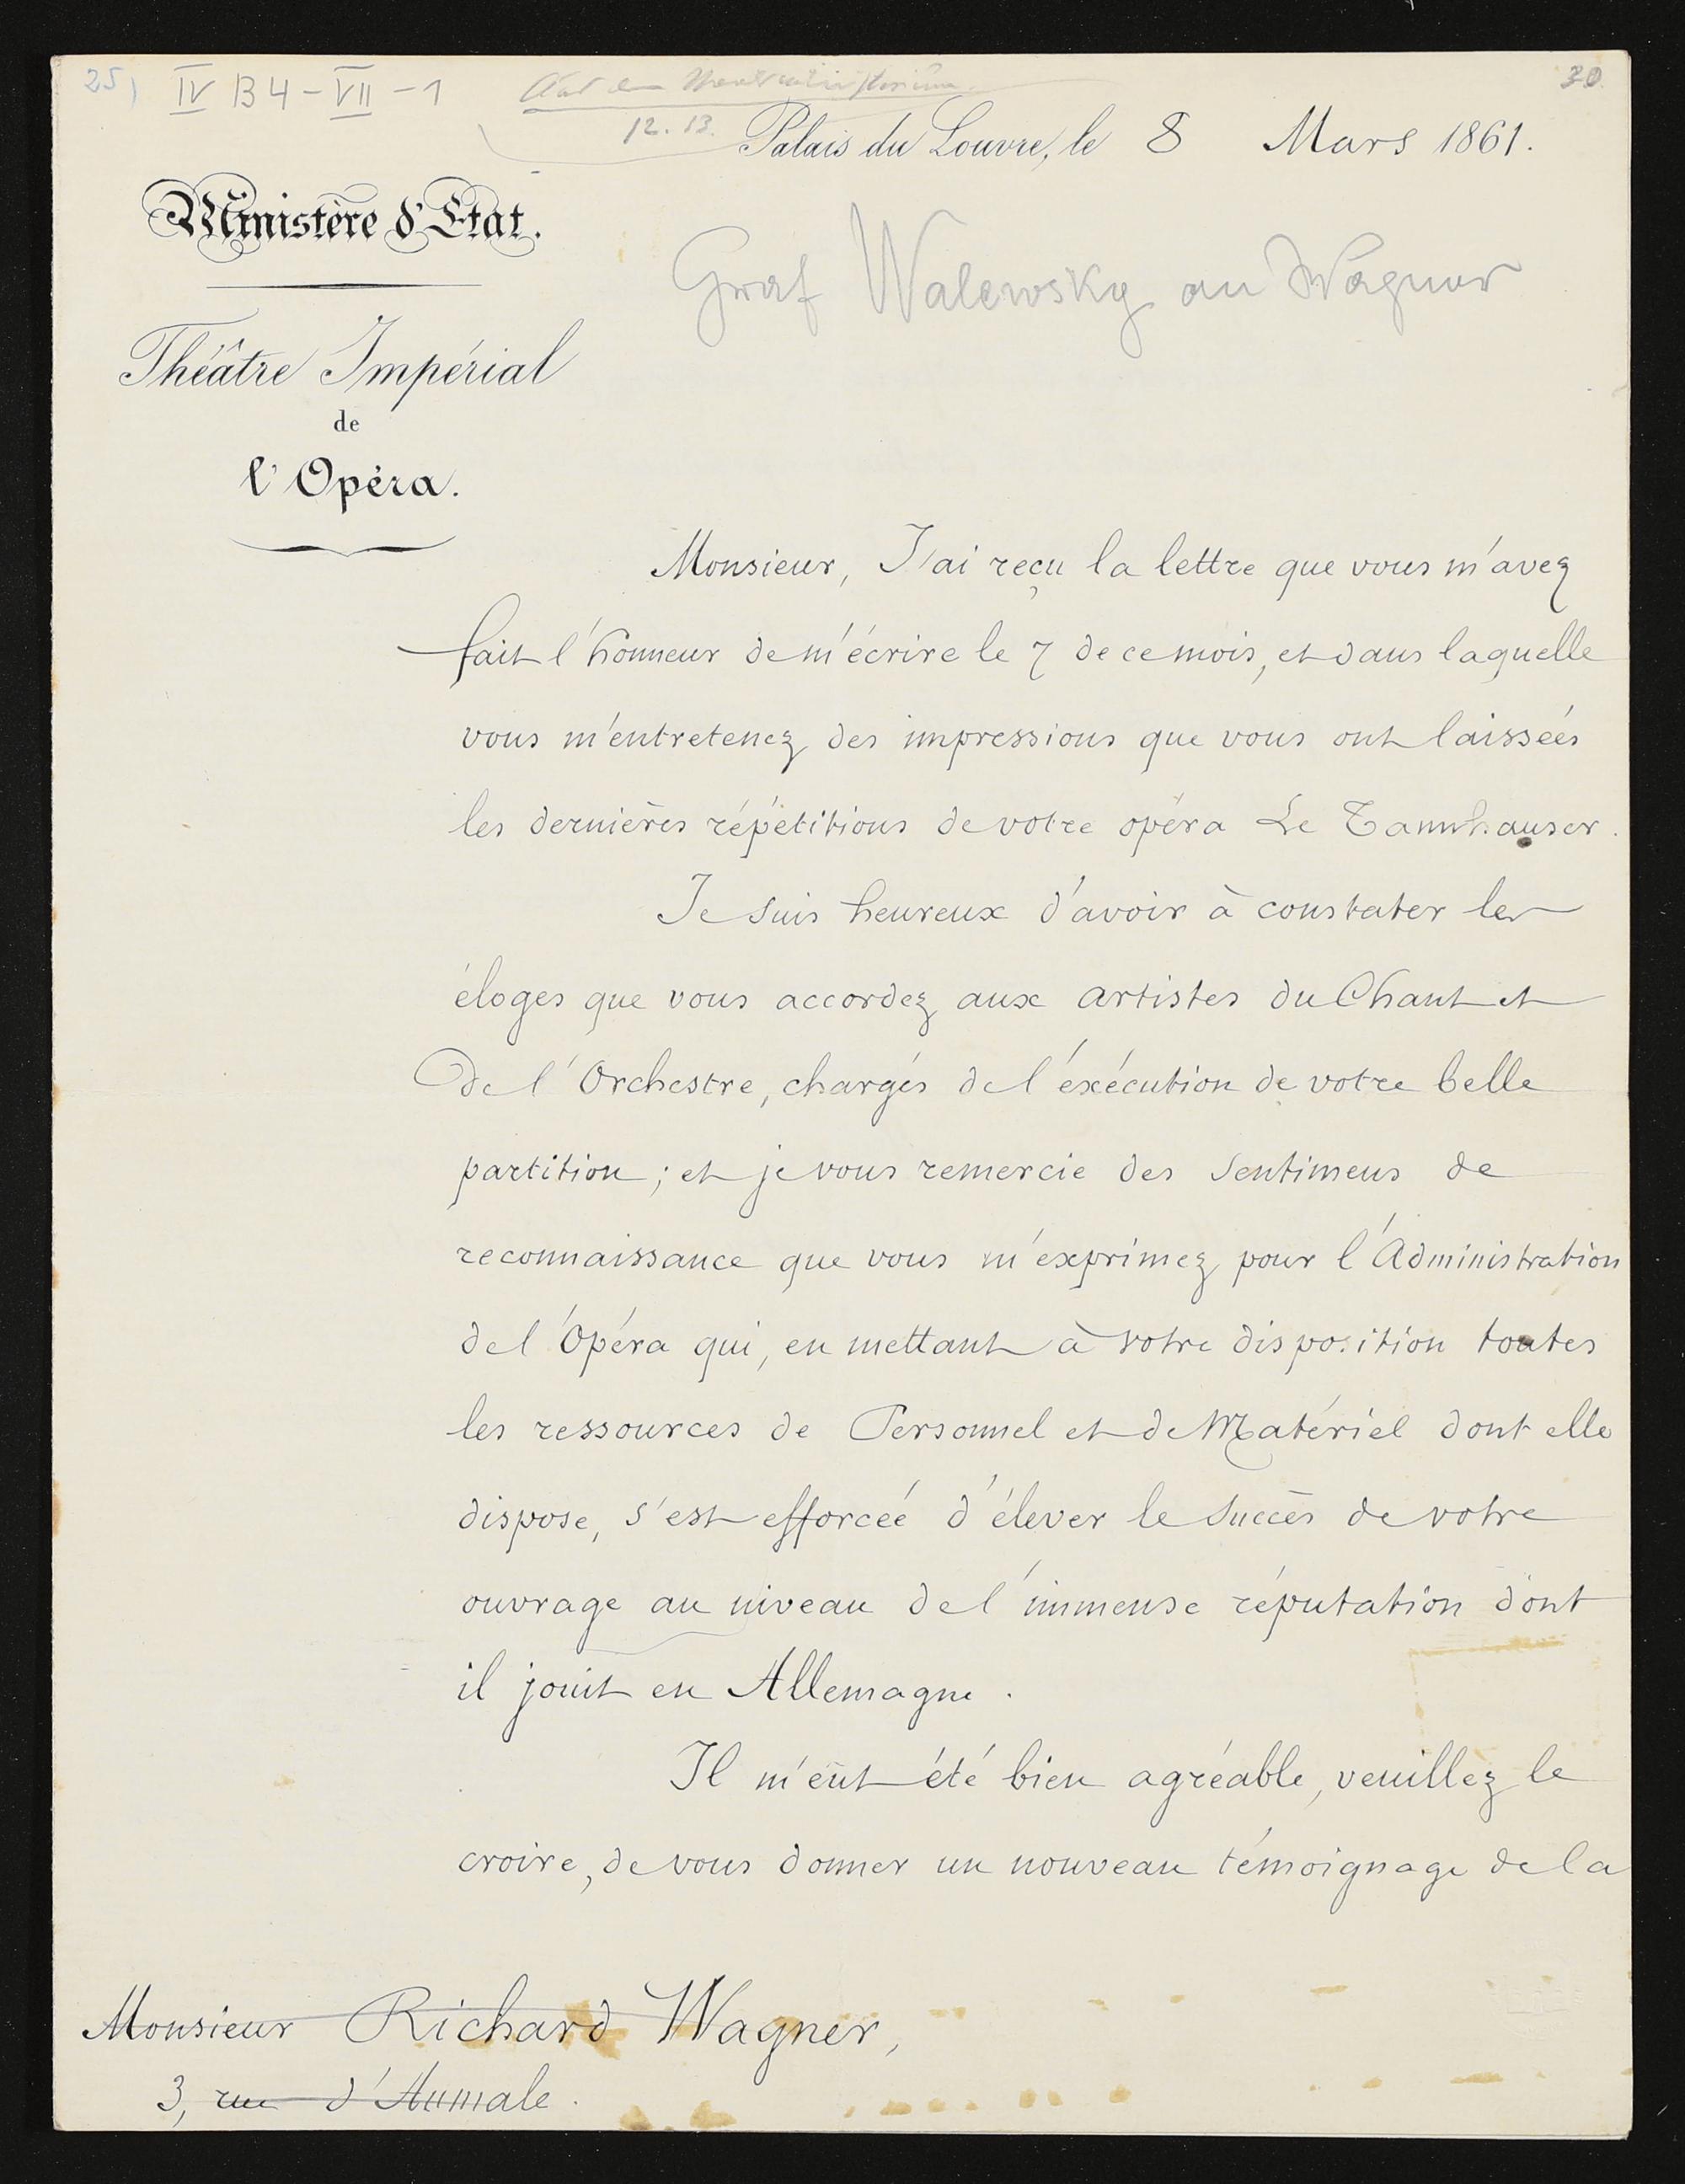 25)
IV B 4 - VII - 1
30.
12. 13.
Palais du Louvre, le 8 Mars 1861.
Ministère d'Etat.
Graf Walewsky an Wagner
Théâtre Impérial
de
l'Opéra.
Monsieur, J'ai reçu la lettre que vous m'avez
fait l'honneur de m'écrire le 7 de ce mois, et dans laquelle
vous m'entretenez des impressions que vous ont laissées
les dernières répétitions de votre opéra Le Tannhauser.
Je suis heureux d'avoir à constater les
éloges que vous accordez aux artistes du Chant et
de l'Orchestre, chargés de l'éxécution de votre belle
partition ; et je vous remercie des sentimens de
reconnaissance que vous m'exprimez pour l'Administration
de l'Opéra qui, en mettant à votre disposition toutes
les ressources de Personnel et de Matériel dont elle
dispose, s'est efforcée d'élever le succès de votre
ouvrage au niveau de l'immense réputation dont
il jouit en Allemagne.
Il m'eût été bien agréable, veuillez le
croire, de vous donner un nouveau témoignage de la
Monsieur Richard Wagner,
3, rue d'Aumale.